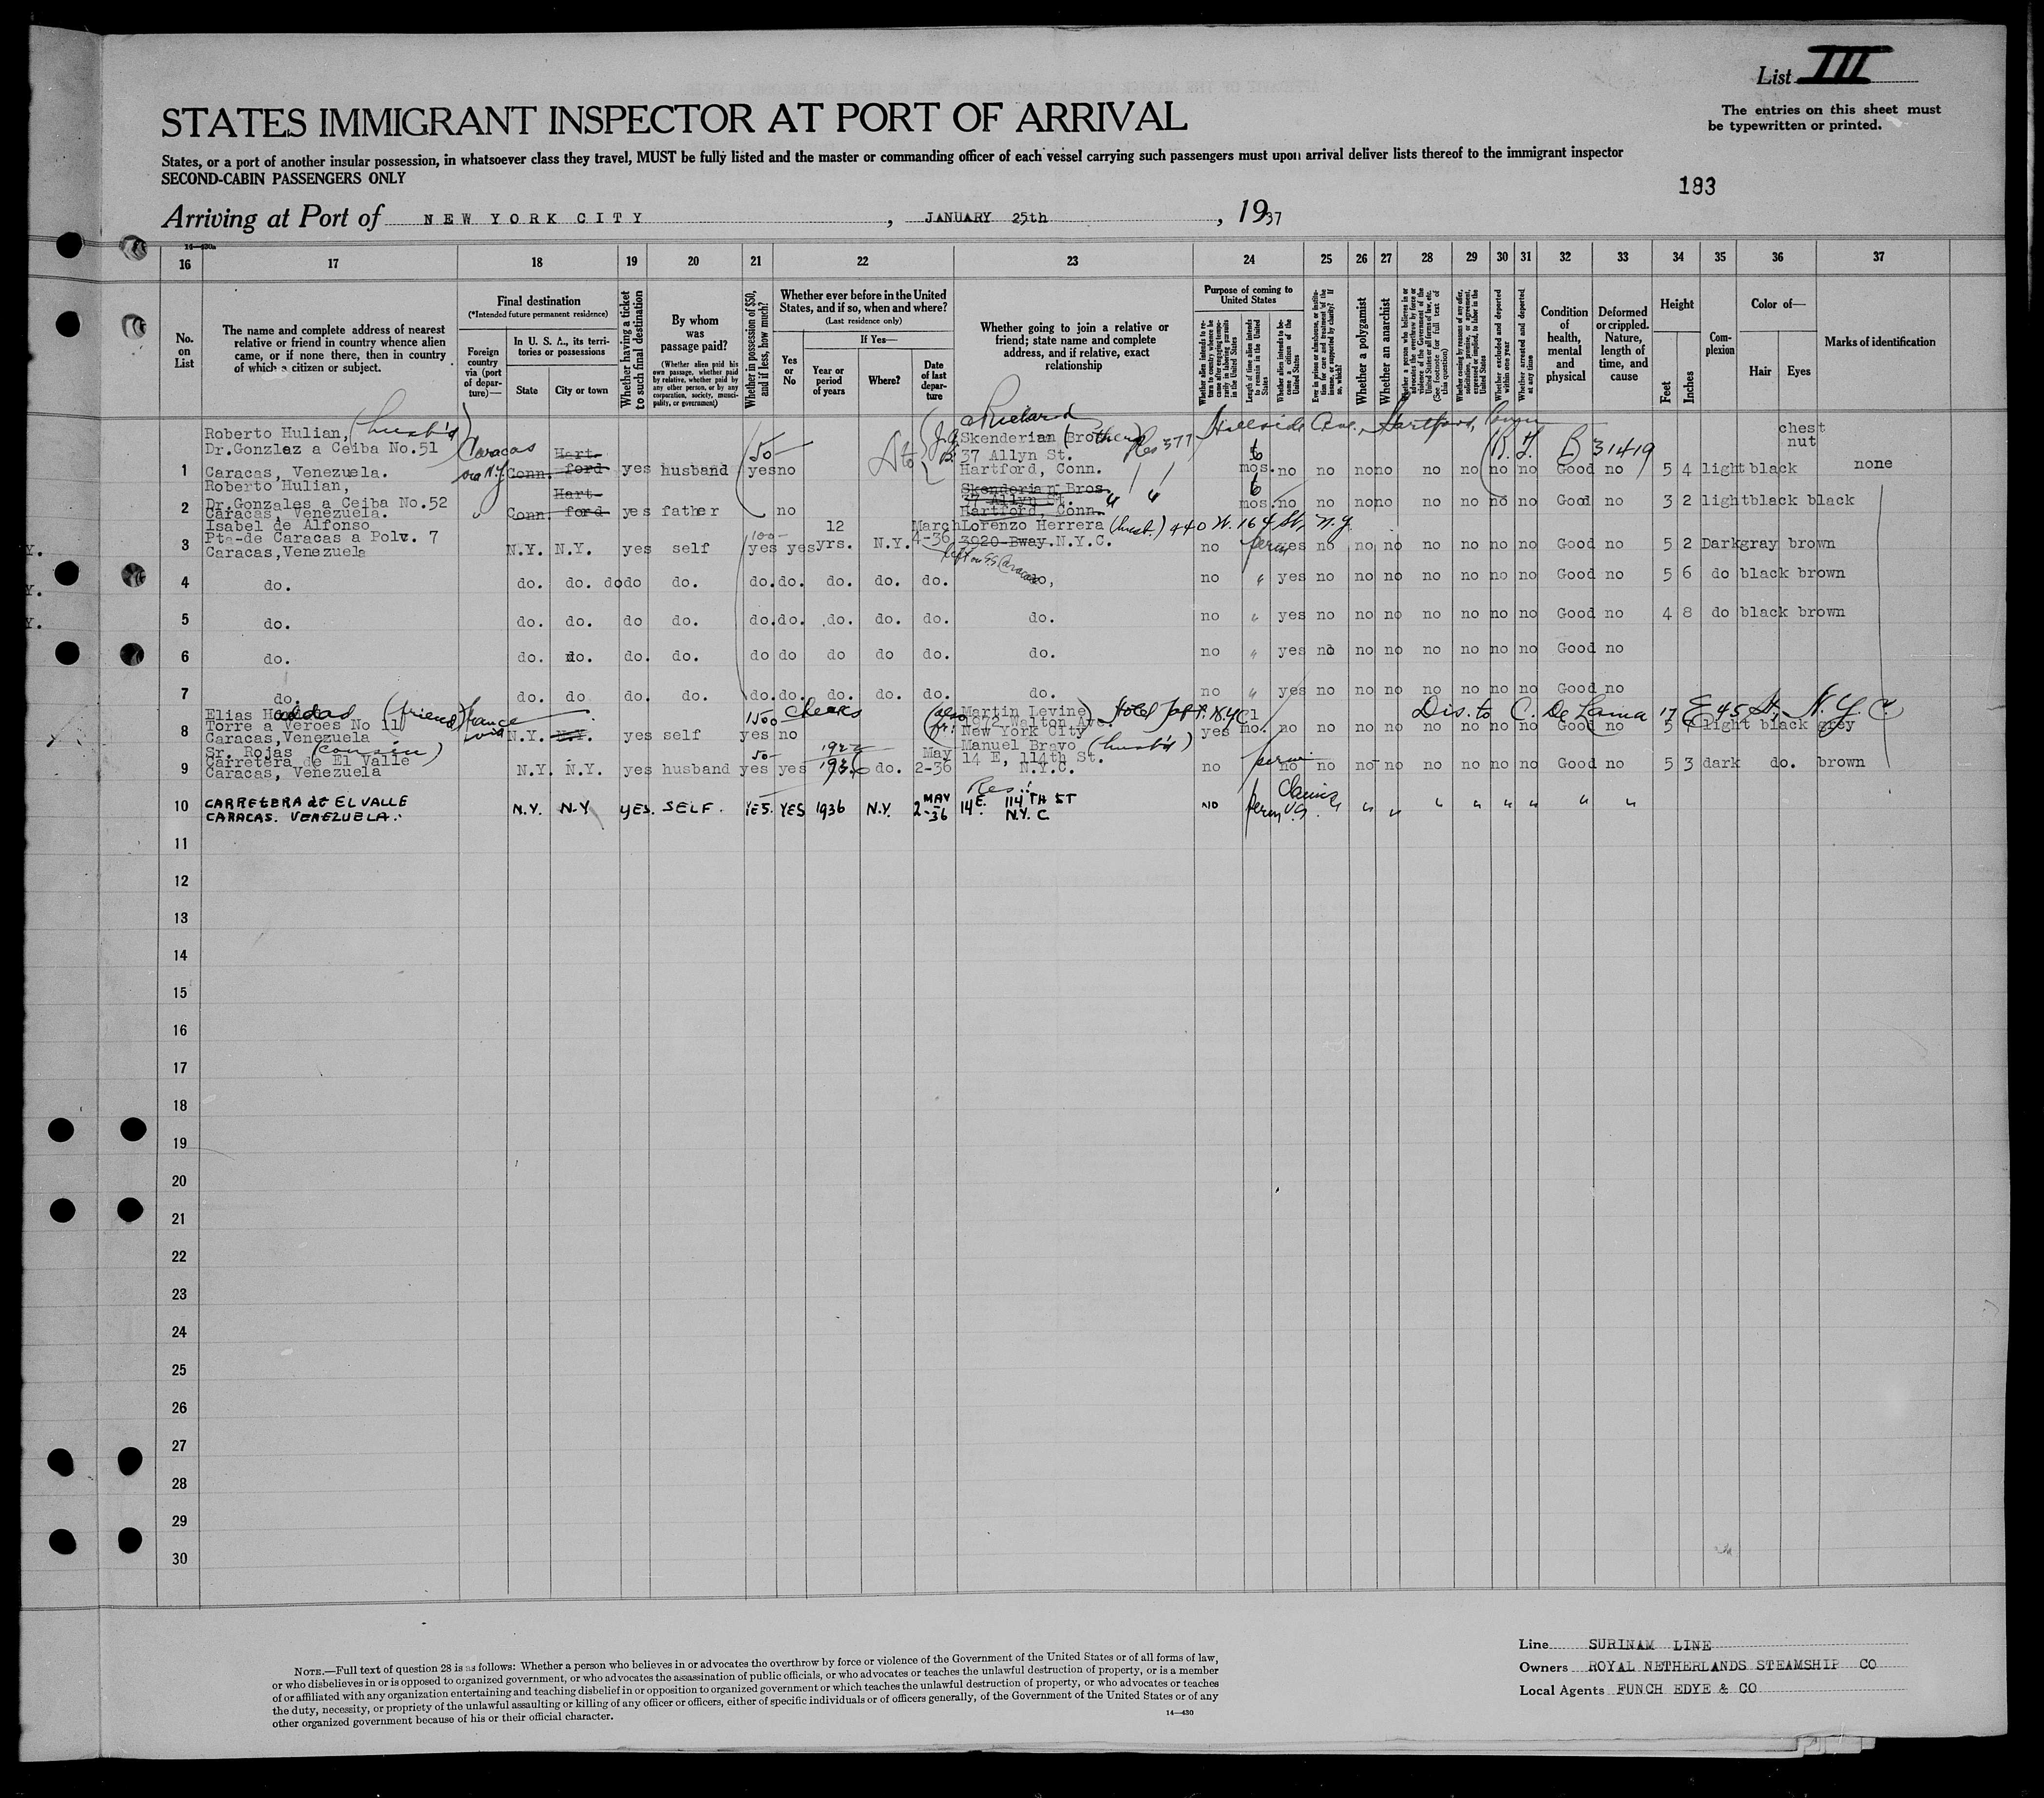 List III
The entries on this sheet must
be typewritten or printed.
STATES IMMIGRANT INSPECTOR AT PORT OF ARRIVAL
States, or a port of another insular possession, in whatsoever class they travel, MUST be fully listed and the master or commanding officer of each vessel carrying such passengers must upon arrival deliver lists thereof to the immigrant inspector
SECOND-CABIN PASSENGERS ONLY
183
Arriving at Port of NEW YORK CITY, JANUARY 25th, 1937
14—430a
16 17 18 19 20 21 22 23 24 25 26 27 28 29 30 31 32 33 34 35 36 37
No. on List
The name and complete address of nearest
relative or friend in country whence alien
came, or if none there, then in country
of which a citizen or subject.
Final destination
(*Intended future permanent residence)
Foreign country via (port of departure)—
In U. S. A., its territories or possessions
State
City or town
Whether having a ticket to such final destination
By whom was passage paid?
(Whether alien paid his own passage, whether paid by relative, whether paid by any other person, or by any corporation, society, municipality, or government)
Whether in possession of $50, and if less, how much?
Whether ever before in the United States, and if so, when and where?
(Last residence only)
Yes or No
If Yes—
Year or period of years
Where?
Date of last departure
Whether going to join a relative or
friend; state name and complete
address, and if relative, exact
relationship
Purpose of coming to United States
Whether a polygamist
Whether an anarchist
Whether excluded and deported within one year
Whether arrested and deported at any time
Condition of health, mental and physical
Deformed or crippled. Nature, length of time, and cause
Height
Feet
Inches
Complexion
Color of—
Hair
Eyes
Marks of identification
Richard Hillside Ave., Hartford, Conn
Roberto Hulian, (husb'd) Caracas 50— Skenderian (Brother) Res 377 B 31419 chest
Dr.Gonzlez a Ceiba No.51 Hart- 37 Allyn St. 6 nut
1 Caracas, Venezuela. via N.Y. Conn. ford yes husband yes no Hartford, Conn. mos. no no no no no no no no Good no 5 4 light black none
Roberto Hulian, Hart- Skenderian Bros. 6
Dr.Gonzales a Ceiba No.52 37 Allyn St.
2 Caracas, Venezuela. Conn. ford yes father no Hartford, Conn. mos. no no no no no no no no Good no 3 2 light black black
Isabel de Alfonso 12 March Lorenzo Herrera (husb.) 440 W. 164 St, N.Y
Pta-de Caracas a Polv. 7 100— 4-36 3920 Bway. N.Y.C.
3 Caracas,Venezuela N.Y. N.Y. yes self yes yes yrs. N.Y. no perm yes no no no no no no no Good no 5 2 Dark gray brown
4 do. do. do. do do do. do. do. do. do. do. do, no " yes no no no no no no no Good no 5 6 do black brown
5 do. do. do. do do. do. do. do. do. do. do. no " yes no no no no no no no Good no 4 8 do black brown
6 do. do. do. do. do. do do do do do. do. no " yes no no no no no no no Good no
7 do. do. do do. do. do. do. do. do. do. do. no " yes no no no no no no no Good no
Elias (friend) France 1500 checks Martin Levine Hotel Dis. to C. De Lama 17 E 45 St, N.Y.C.
Torre a Veroes No 11 via 1972 Walton Ave.
8 Caracas,Venezuela N.Y. N.Y. yes self yes no New York City yes mo. no no no no no no no no Good no 5 light black grey
Sr. Rojas (cousin) 50— May Manuel Bravo (husb'd)
Carretera de El Valle 14 E, 114th St. perm
9 Caracas, Venezuela N.Y. N.Y. yes husband yes yes 1936 do. 2-36 N.Y.C. no no no no no no no no no Good no 5 3 dark do. brown
Res:
10 CARRETERA de EL VALLE N.Y. N.Y YES. SELF. YES. YES 1936 N.Y. MAY 2-36 14 E. 114TH ST NO perm Claims U.S. " " " " " " " " "
CARACAS. VENEZUELA. N.Y.C
11
12
13
14
15
16
17
18
19
20
21
22
23
24
25
26
27
28
29
30
NOTE.—Full text of question 28 is as follows: Whether a person who believes in or advocates the overthrow by force or violence of the Government of the United States or of all forms of law,
or who disbelieves in or is opposed to organized government, or who advocates the assassination of public officials, or who advocates or teaches the unlawful destruction of property, or is a member
of or affiliated with any organization entertaining and teaching disbelief in or opposition to organized government or which teaches the unlawful destruction of property, or who advocates or teaches
the duty, necessity, or propriety of the unlawful assaulting or killing of any officer or officers, either of specific individuals or of officers generally, of the Government of the United States or of any
other organized government because of his or their official character.
14—430
Line SURINAM LINE
Owners ROYAL NETHERLANDS STEAMSHIP CO
Local Agents FUNCH EDYE & CO